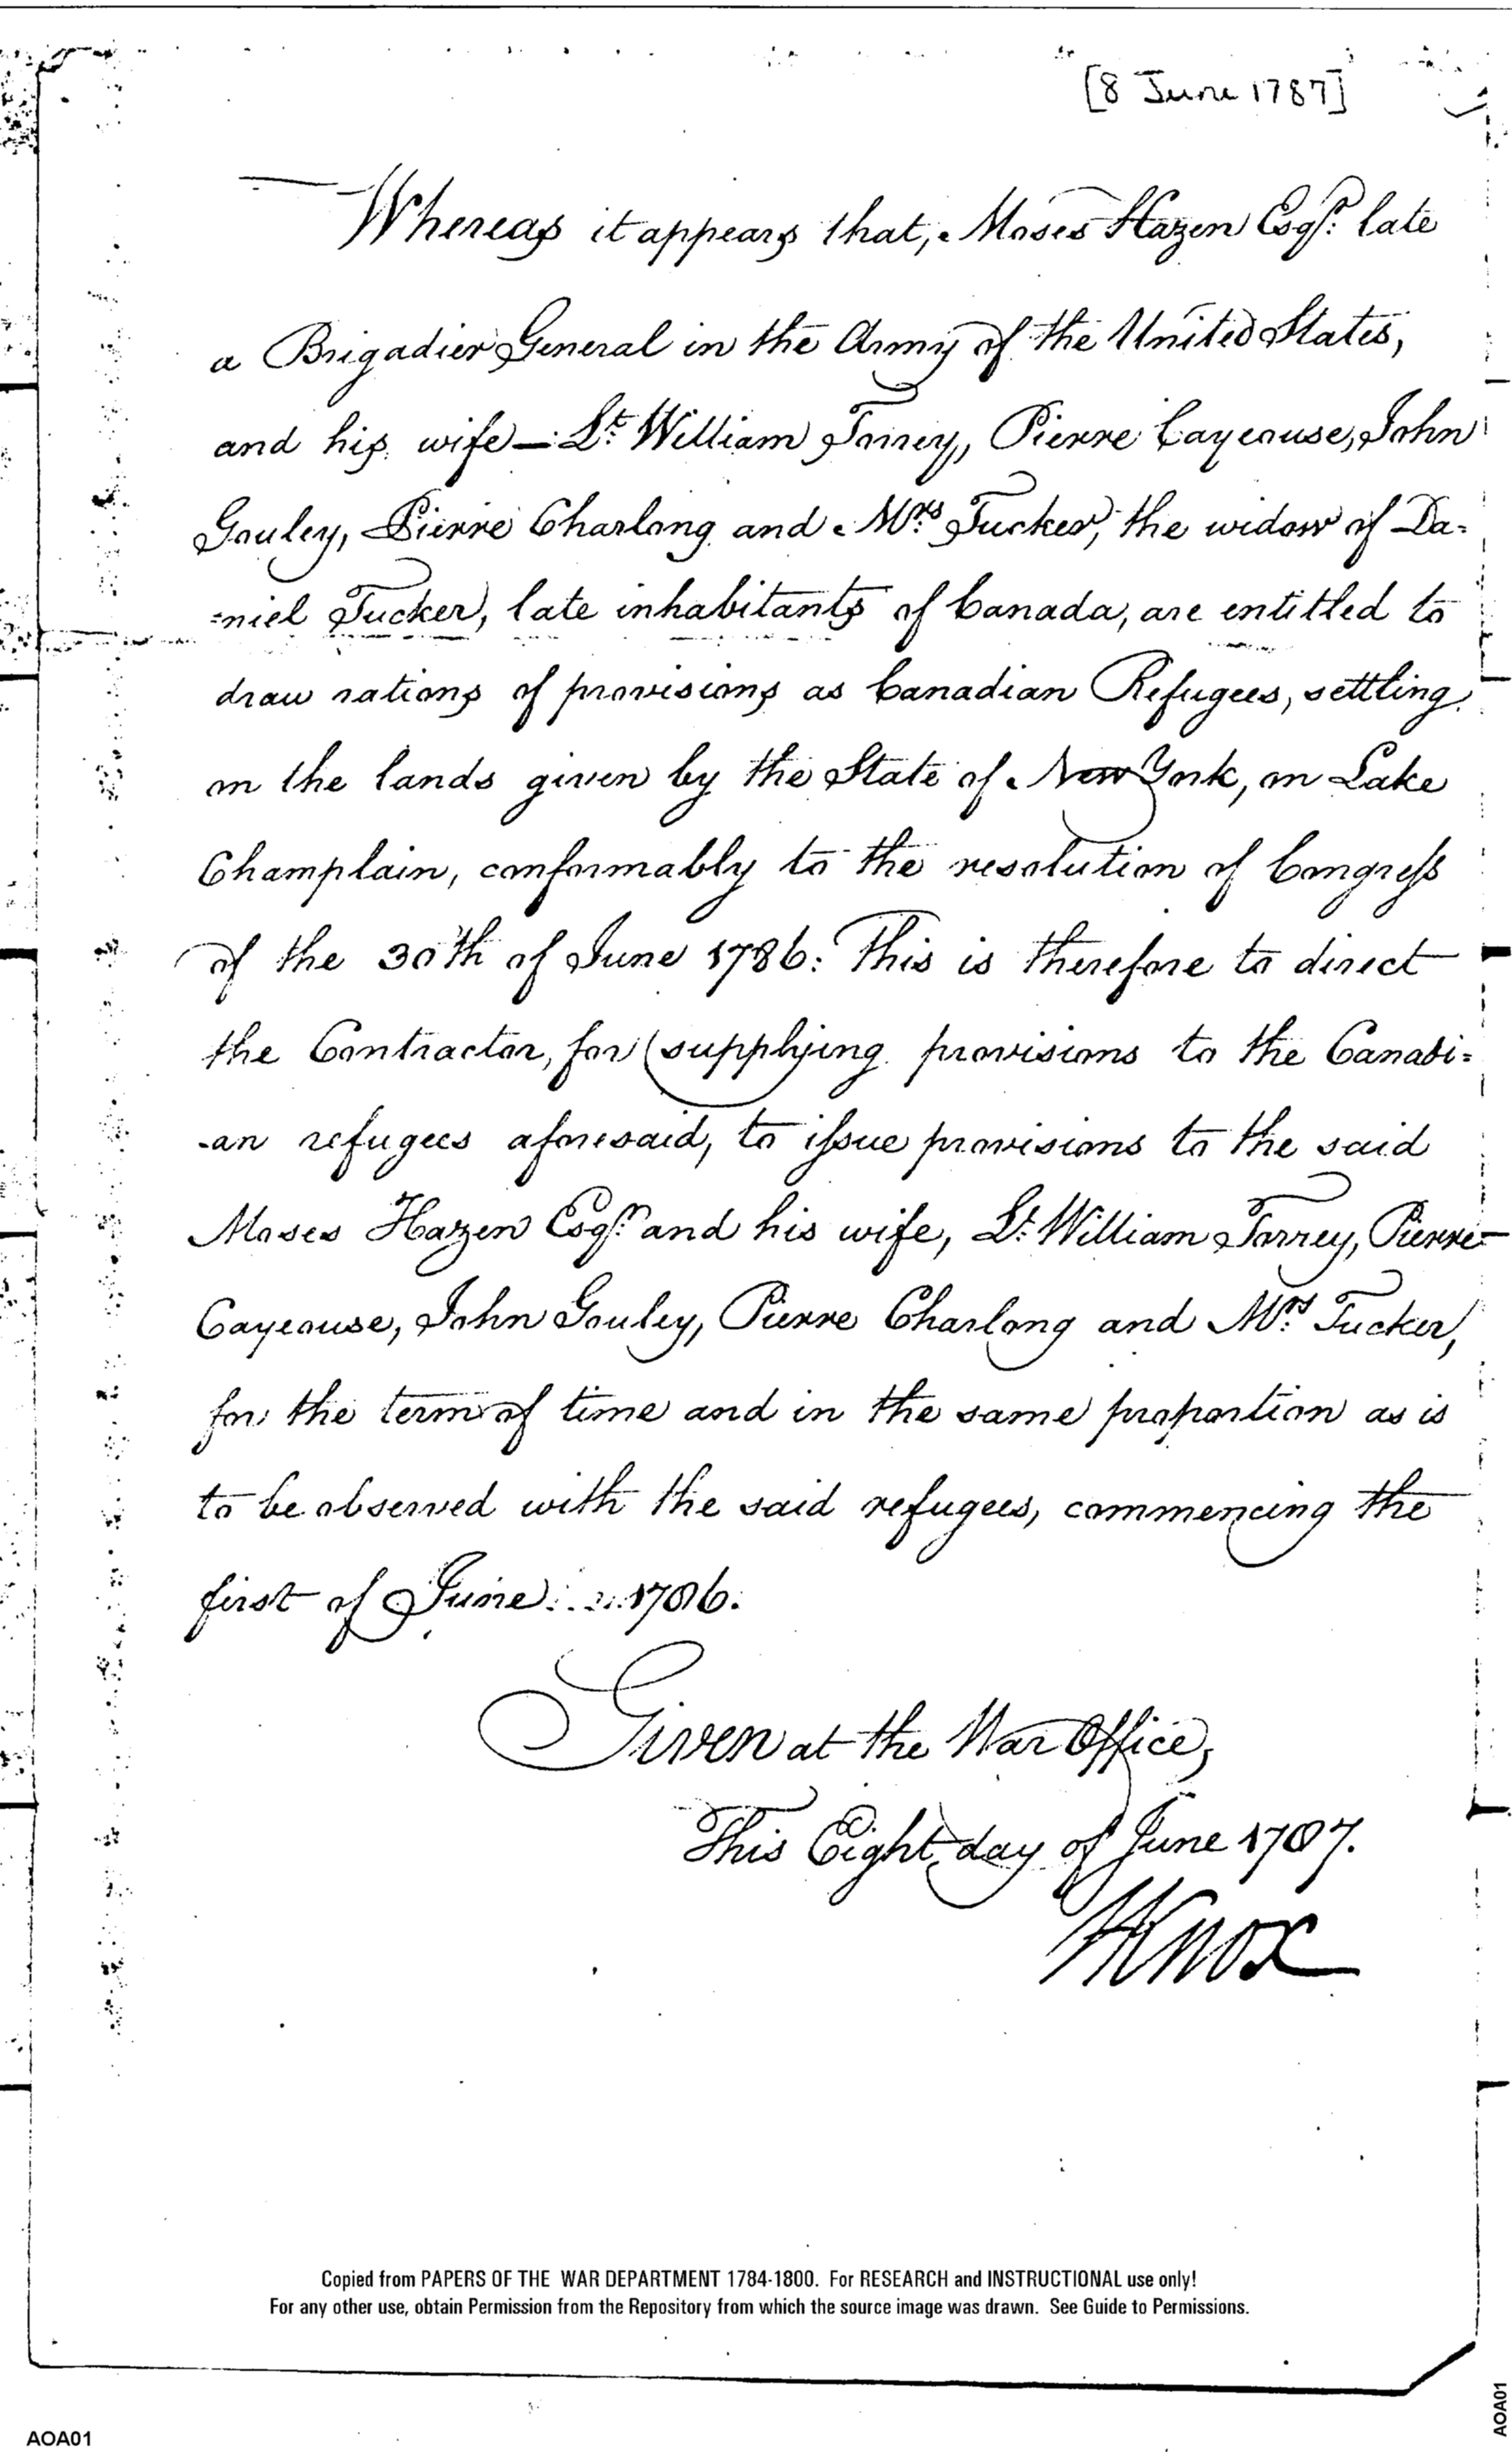 [8 June 1787]
Whereas it appears that, Moses Hazen Esqr. late
a Brigadier General in the Army of the United States,
and his wife —: Lt. William Torrey, Pierre Cayeouse, John
Gouley, Pierre Charlong and Mrs. Tucker, the widow of Da=
=niel Tucker, late inhabitants of Canada, are entitled to
draw rations of provisions as Canadian Refugees, settling
on the lands given by the State of New York, on Lake
Champlain, conformably to the resolution of Congress
of the 30th of June 1786: This is therefore to direct
the Contractor, for supplying provisions to the Canadi=
-an refugees aforesaid, to issue provisions to the said
Moses Hazen Esqr. and his wife, Lt. William Torrey, Pierre
Cayeouse, John Gouley, Pierre Charlong and Mrs. Tucker,
for the term of time and in the same proportion as is
to be observed with the said refugees, commencing the
first of June 1786.
Given at the War Office,
This Eight day of June 1787.
HKnox
Copied from PAPERS OF THE WAR DEPARTMENT 1784-1800. For RESEARCH and INSTRUCTIONAL use only!
For any other use, obtain Permission from the Repository from which the source image was drawn. See Guide to Permissions.
AOA01
AOA01